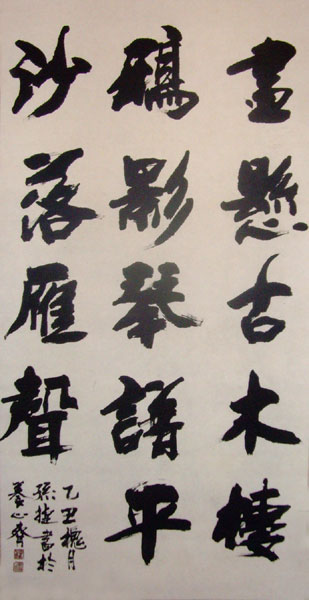 畫懸古木棲
鴉影琴譜平
沙落雁聲
乙丑槐月
孫捷書於
養心齋